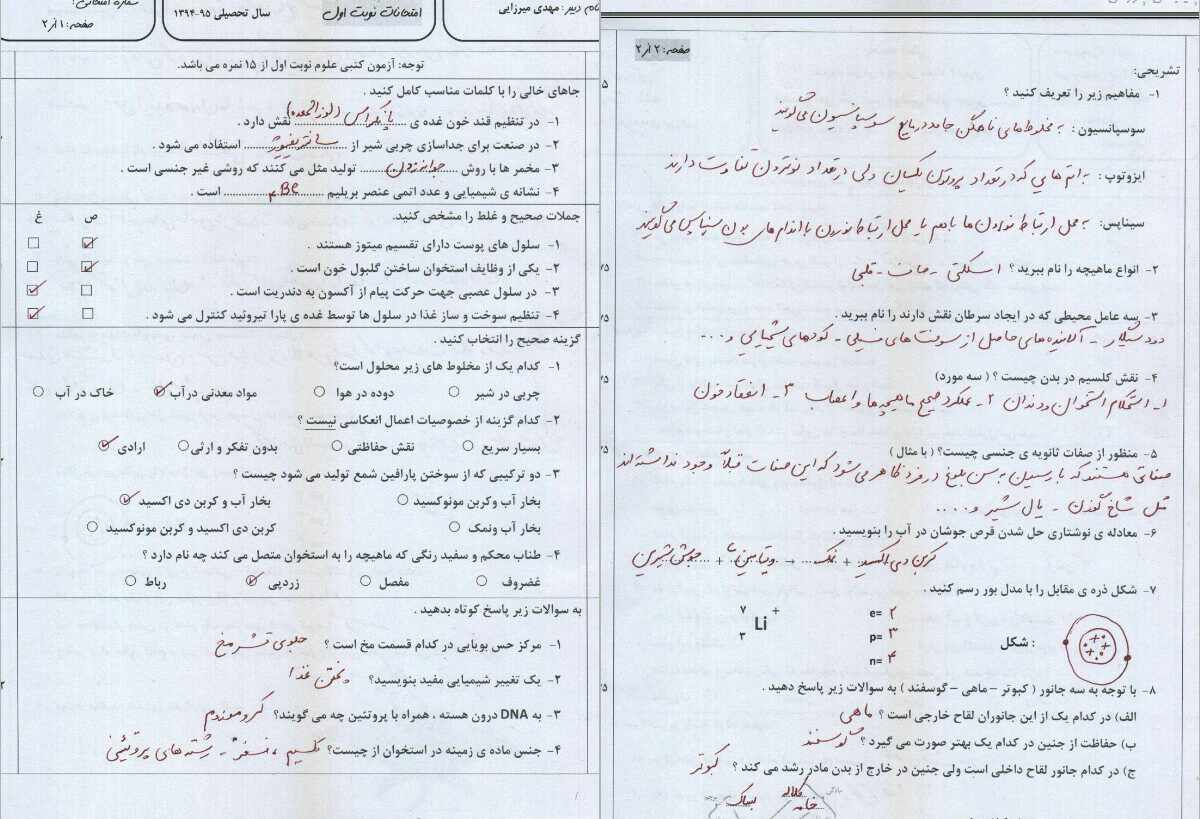 نام دبیر: مهدی میرزایی
امتحانات نوبت اول
سال تحصیلی ۹۵-۱۳۹۴
شماره امتحانی:
صفحه: ۱ از ۲
توجه: آزمون کتبی علوم نوبت اول از ۱۵ نمره می باشد.
جاهای خالی را با کلمات مناسب کامل کنید .
۱- در تنظیم قند خون غده ی پانکراس (لوزالمعده) نقش دارد .
۲- در صنعت برای جداسازی چربی شیر از سانتریفیوژ استفاده می شود .
۳- مخمر ها با روش جوانه زدن تولید مثل می کنند که روشی غیر جنسی است .
۴- نشانه ی شیمیایی و عدد اتمی عنصر بریلیم ۴Be است .
جملات صحیح و غلط را مشخص کنید. ص غ
۱- سلول های پوست دارای تقسیم میتوز هستند .
۲- یکی از وظایف استخوان ساختن گلبول خون است .
۳- در سلول عصبی جهت حرکت پیام از آکسون به دندریت است .
۴- تنظیم سوخت و ساز غذا در سلول ها توسط غده ی پارا تیروئید کنترل می شود .
گزینه صحیح را انتخاب کنید .
۱- کدام یک از مخلوط های زیر محلول است؟
چربی در شیر دوده در هوا مواد معدنی در آب خاک در آب
۲- کدام گزینه از خصوصیات اعمال انعکاسی نیست ؟
بسیار سریع نقش حفاظتی بدون تفکر و ارثی ارادی
۳- دو ترکیبی که از سوختن پارافین شمع تولید می شود چیست ؟
بخار آب وکربن مونوکسید بخار آب و کربن دی اکسید
بخار آب ونمک کربن دی اکسید و کربن مونوکسید
۴- طناب محکم و سفید رنگی که ماهیچه را به استخوان متصل می کند چه نام دارد ؟
غضروف مفصل زردپی رباط
به سوالات زیر پاسخ کوتاه بدهید .
۱- مرکز حس بویایی در کدام قسمت مخ است ؟ جلوی قشر مخ
۲- یک تغییر شیمیایی مفید بنویسید؟ پختن غذا
۳- به DNA درون هسته ، همراه با پروتئین چه می گویند؟ کروموزوم
۴- جنس ماده ی زمینه در استخوان از چیست؟ کلسیم ، فسفر - رشته های پروتئینی
صفحه: ۲ از ۲
تشریحی:
۱- مفاهیم زیر را تعریف کنید ؟
سوسپانسیون : به مخلوط های ناهمگن جامد در مایع سوسپانسیون می گویند
ایزوتوپ : به اتم هایی که در تعداد پروتون یکسان ولی در تعداد نوترون تفاوت دارند
سیناپس: به محل ارتباط نورون ها با هم یا محل ارتباط نورون با اندام های بدن سیناپس می گویند
۲- انواع ماهیچه را نام ببرید ؟ اسکلتی - صاف - قلبی
۳- سه عامل محیطی که در ایجاد سرطان نقش دارند را نام ببرید .
دود سیگار - آلاینده های حاصل از سوخت های فسیلی - کودهای شیمیایی و ....
۴- نقش کلسیم در بدن چیست ؟ ( سه مورد)
۱- استحکام استخوان و دندان ۲- عملکرد صحیح ماهیچه ها و اعصاب ۳- انعقاد خون
۵- منظور از صفات ثانویه ی جنسی چیست؟ ( با مثال )
صفاتی هستند که با رسیدن به سن بلوغ در فرد ظاهر می شود که این صفات قبلاً وجود نداشته اند
مثل شاخ گوزن - یال شیر و ....
۶- معادله ی نوشتاری حل شدن قرص جوشان در آب را بنویسید .
جوش شیرین + ویتامین ث → نمک + کربن دی اکسید
۷- شکل ذره ی مقابل را با مدل بور رسم کنید .
۷ Li + ۳
e= ۲
p= ۳
n= ۴
شکل :
۸- با توجه به سه جانور ( کبوتر - ماهی - گوسفند ) به سوالات زیر پاسخ دهید .
الف) در کدام یک از این جانوران لقاح خارجی است ؟ ماهی
ب) حفاظت از جنین در کدام یک بهتر صورت می گیرد ؟ گوسفند
ج) در کدام جانور لقاح داخلی است ولی جنین در خارج از بدن مادر رشد می کند ؟ کبوتر
کلاله
خامه
بساک